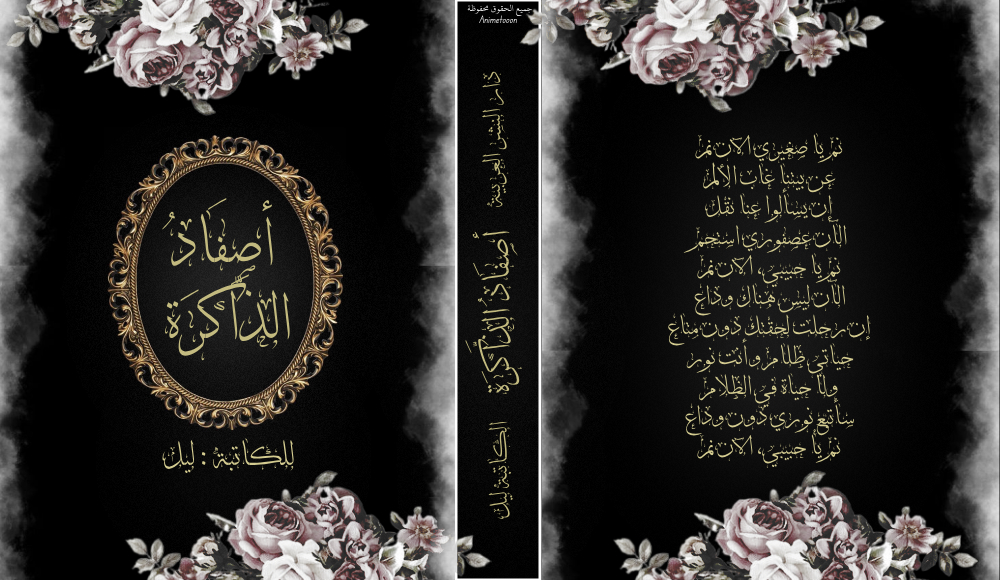 أصفَادُ
الذَّاكرَة
للكاتبة : ليل
جميع الحقوق محفوظة
Animetooon
دار النشر العربية
أصفَادُ الذَّاكرَة
الكاتبة ليل
نم يا صغيري الآن نم
عن بيننا غاب الألم
إن يسألوا عنا نقل
الآن عصفوري استجم
نم يا حبيبي، الآن نم
الآن ليس هناك وداع
إن رحلت لحقتك دون متاع
حياتي ظلام وأنت نور
ولا حياة في الظلام
سأتبع نوري دون وداع
نم يا حبيبي، الآن نم